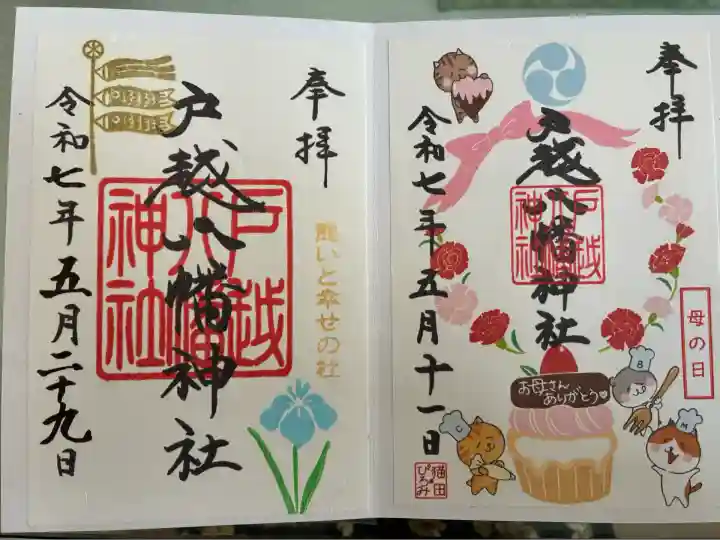 奉拝
戸越八幡神社
令和七年五月十一日
戸越
八幡
神社
母の日
お母さん
ありがとう
B
C
M
奉拝
願いと幸せの社
戸越八幡神社
令和七年五月二十九日
戸越
八幡
神社